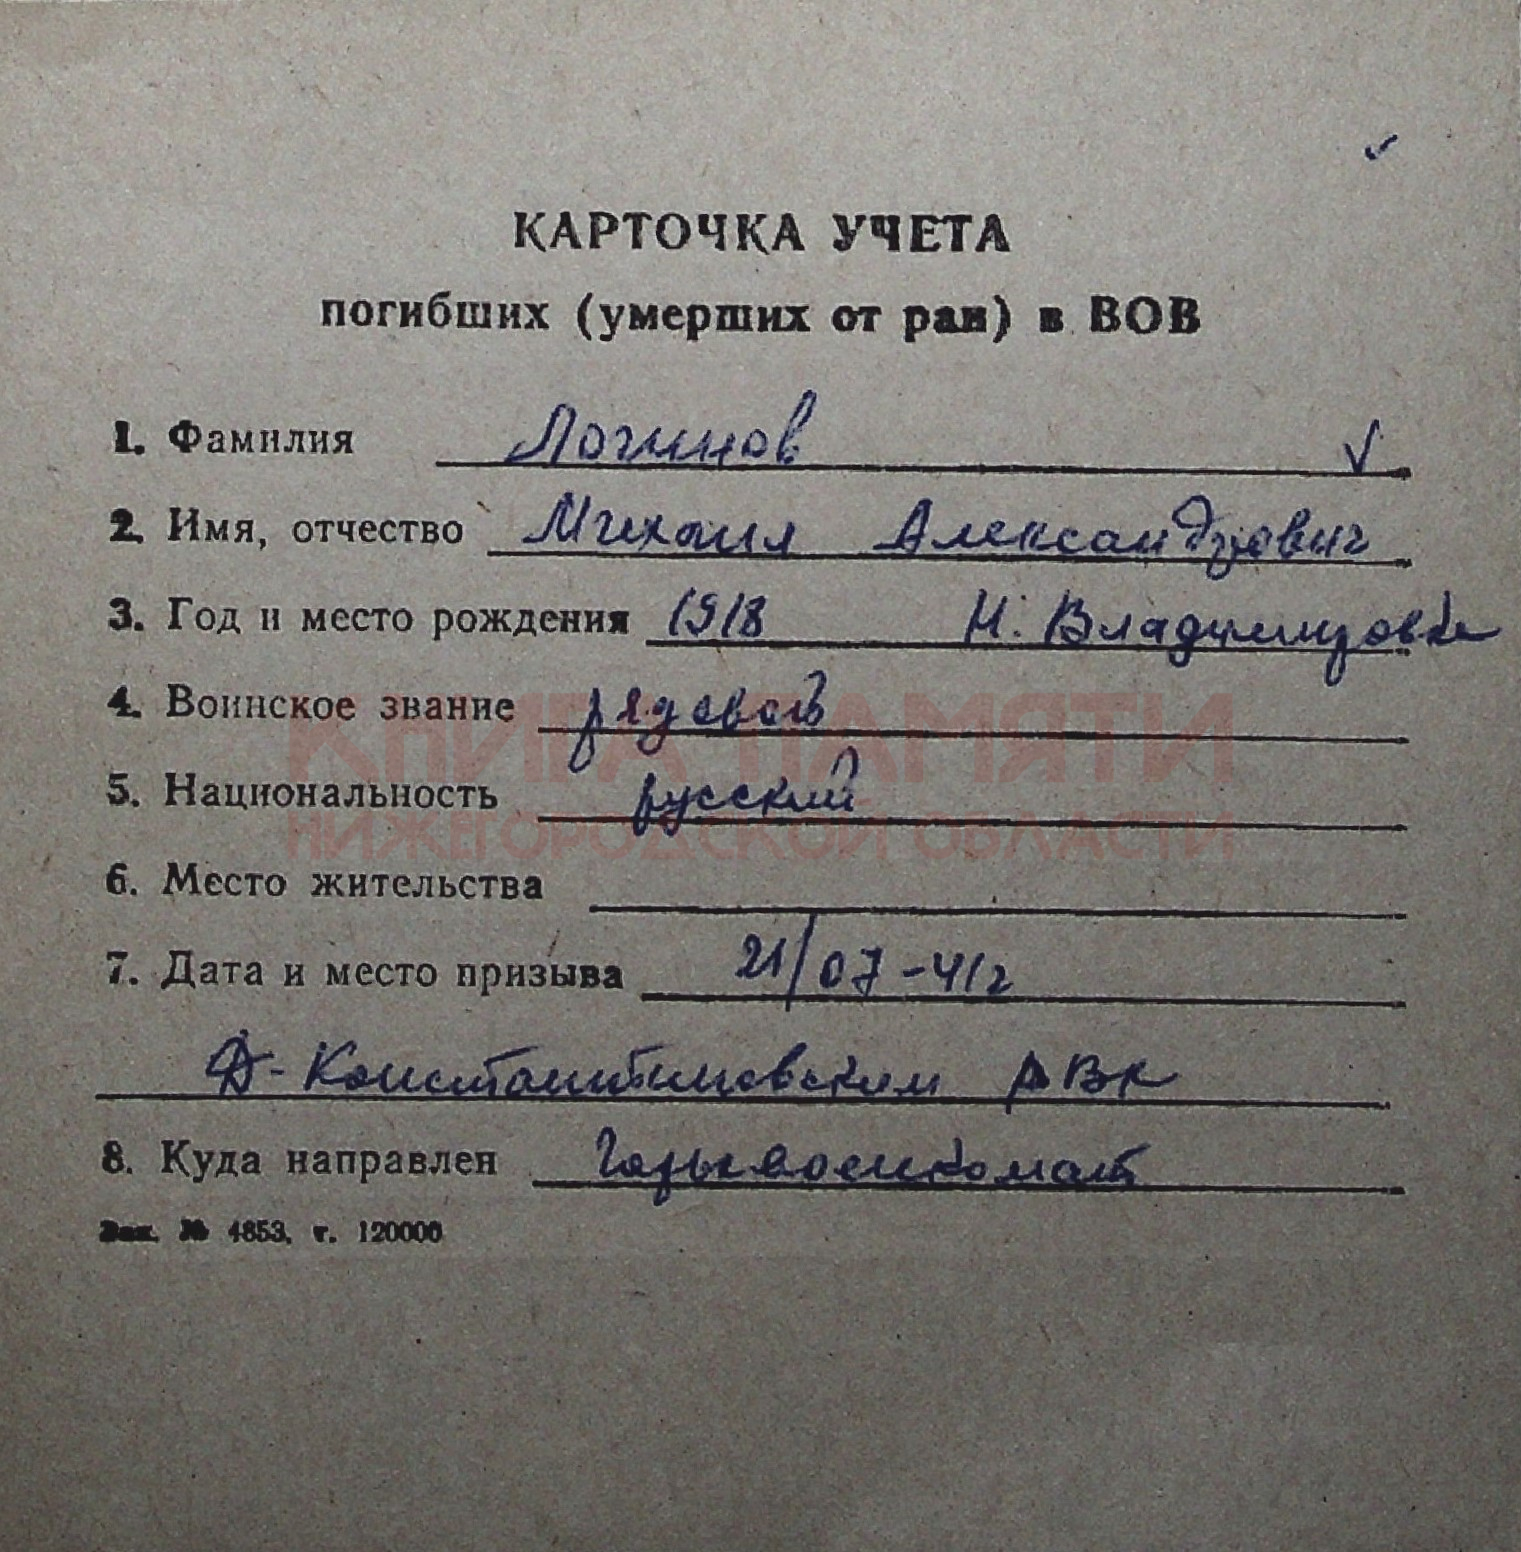 КАРТОЧКА УЧЕТА
погибших (умерших от ран) в ВОВ
1. Фамилия Логинов
2. Имя, отчество Михаил Александрович
3. Год и место рождения 1918 Н. Владимировка
4. Воинское звание рядовой
КНИГА ПАМЯТИ
5. Национальность русский
НИЖЕГОРОДСКОЙ ОБЛАСТИ
6. Место жительства
7. Дата и место призыва 21/07-41г
Д-Константиновским РВК
8. Куда направлен Горьквоенкомат
Зак. № 4853. т. 120000